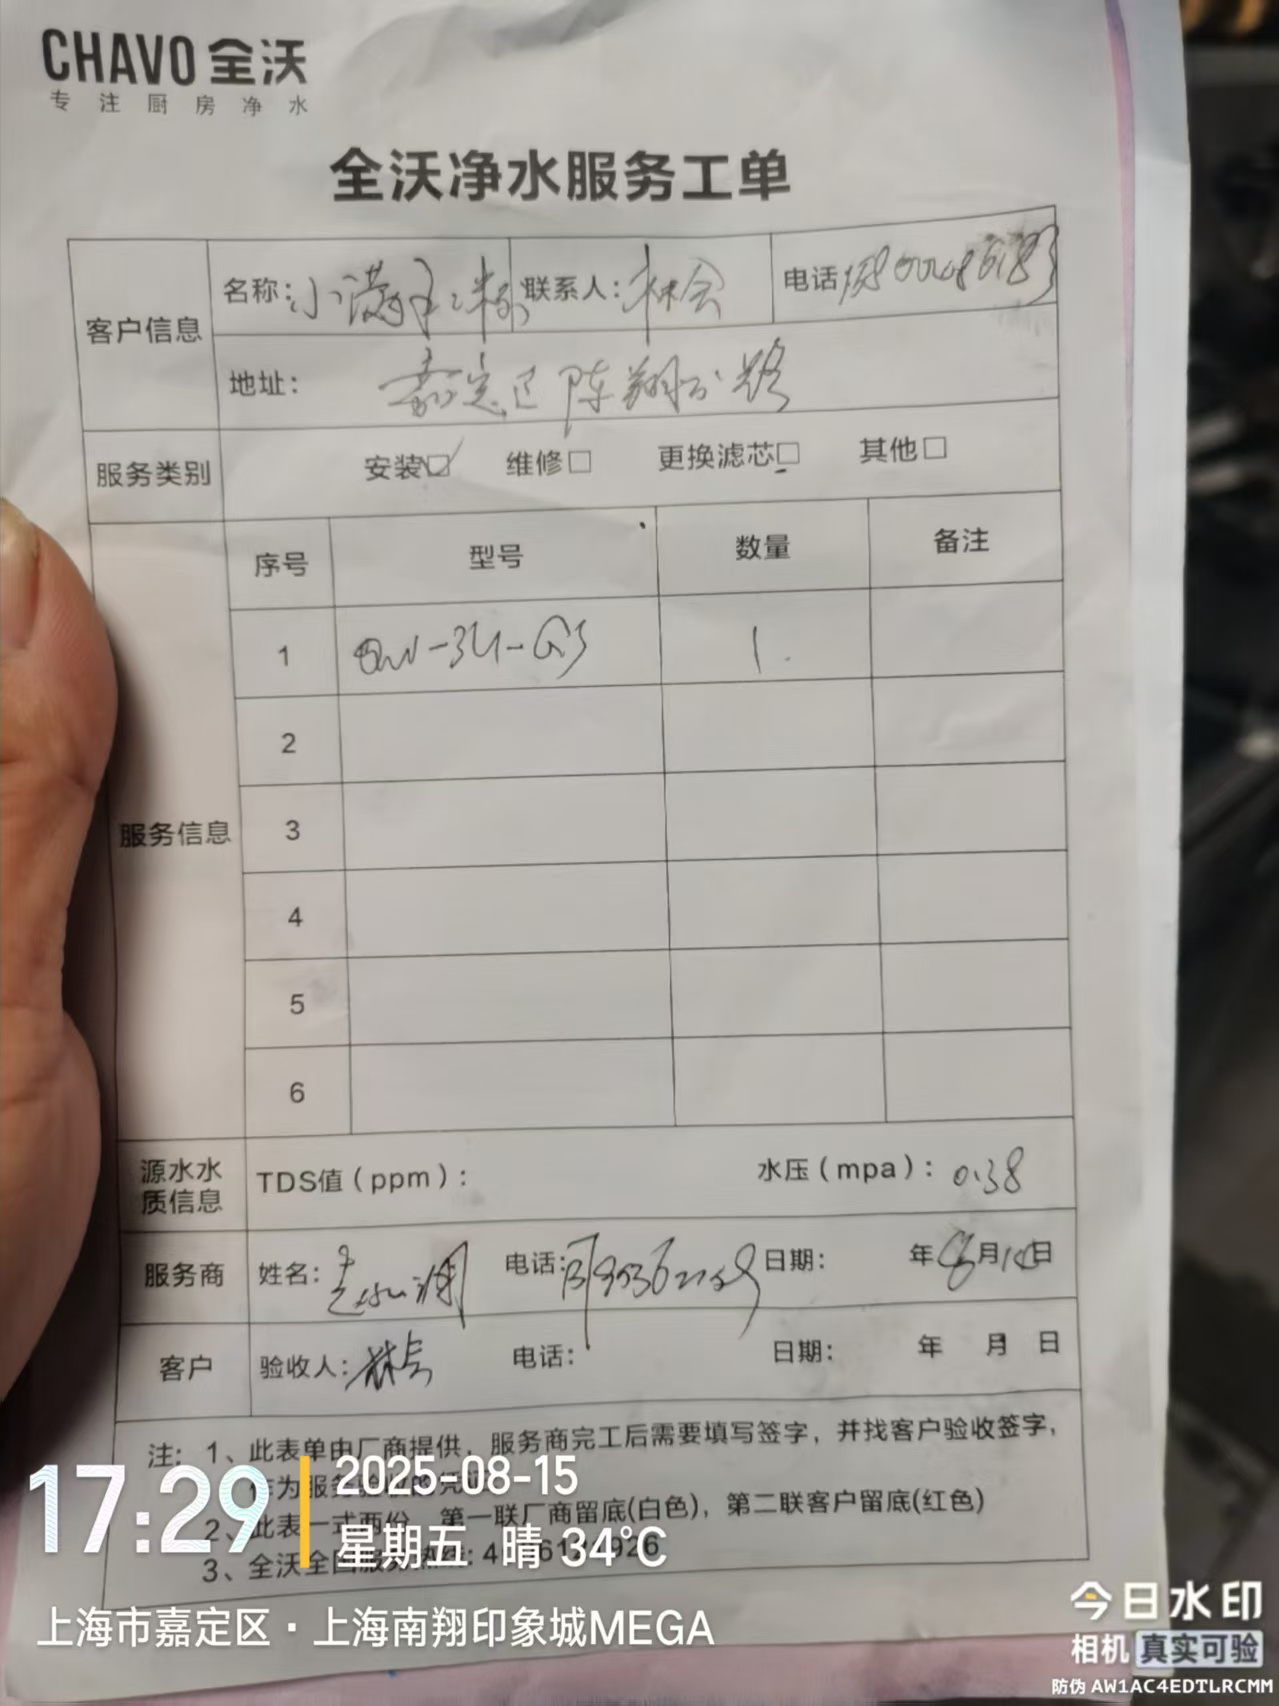 CHAVO 全沃
专注厨房净水
全沃净水服务工单
客户信息 名称:小满手工粉 联系人:林会 电话
地址: 嘉定区陈翔公路
服务类别 安装☑ 维修□ 更换滤芯□ 其他□
服务信息 序号 型号 数量 备注
1 QW-3U-G3 1
2
3
4
5
6
源水水质信息 TDS值(ppm): 水压(mpa): 0.38
服务商 姓名: 电话: 日期: 年8月15日
客户 验收人: 电话: 日期: 年 月 日
注: 1、此表单由厂商提供,服务商完工后需要填写签字,并找客户验收签字,
作为服务
2、此表一式两份,第一联厂商留底(白色),第二联客户留底(红色)
3、全沃全国服务热线:
17:29
2025-08-15
星期五 晴 34℃
上海市嘉定区·上海南翔印象城MEGA
今日水印
相机 真实可验
防伪 AW1AC4EDTLRCMM